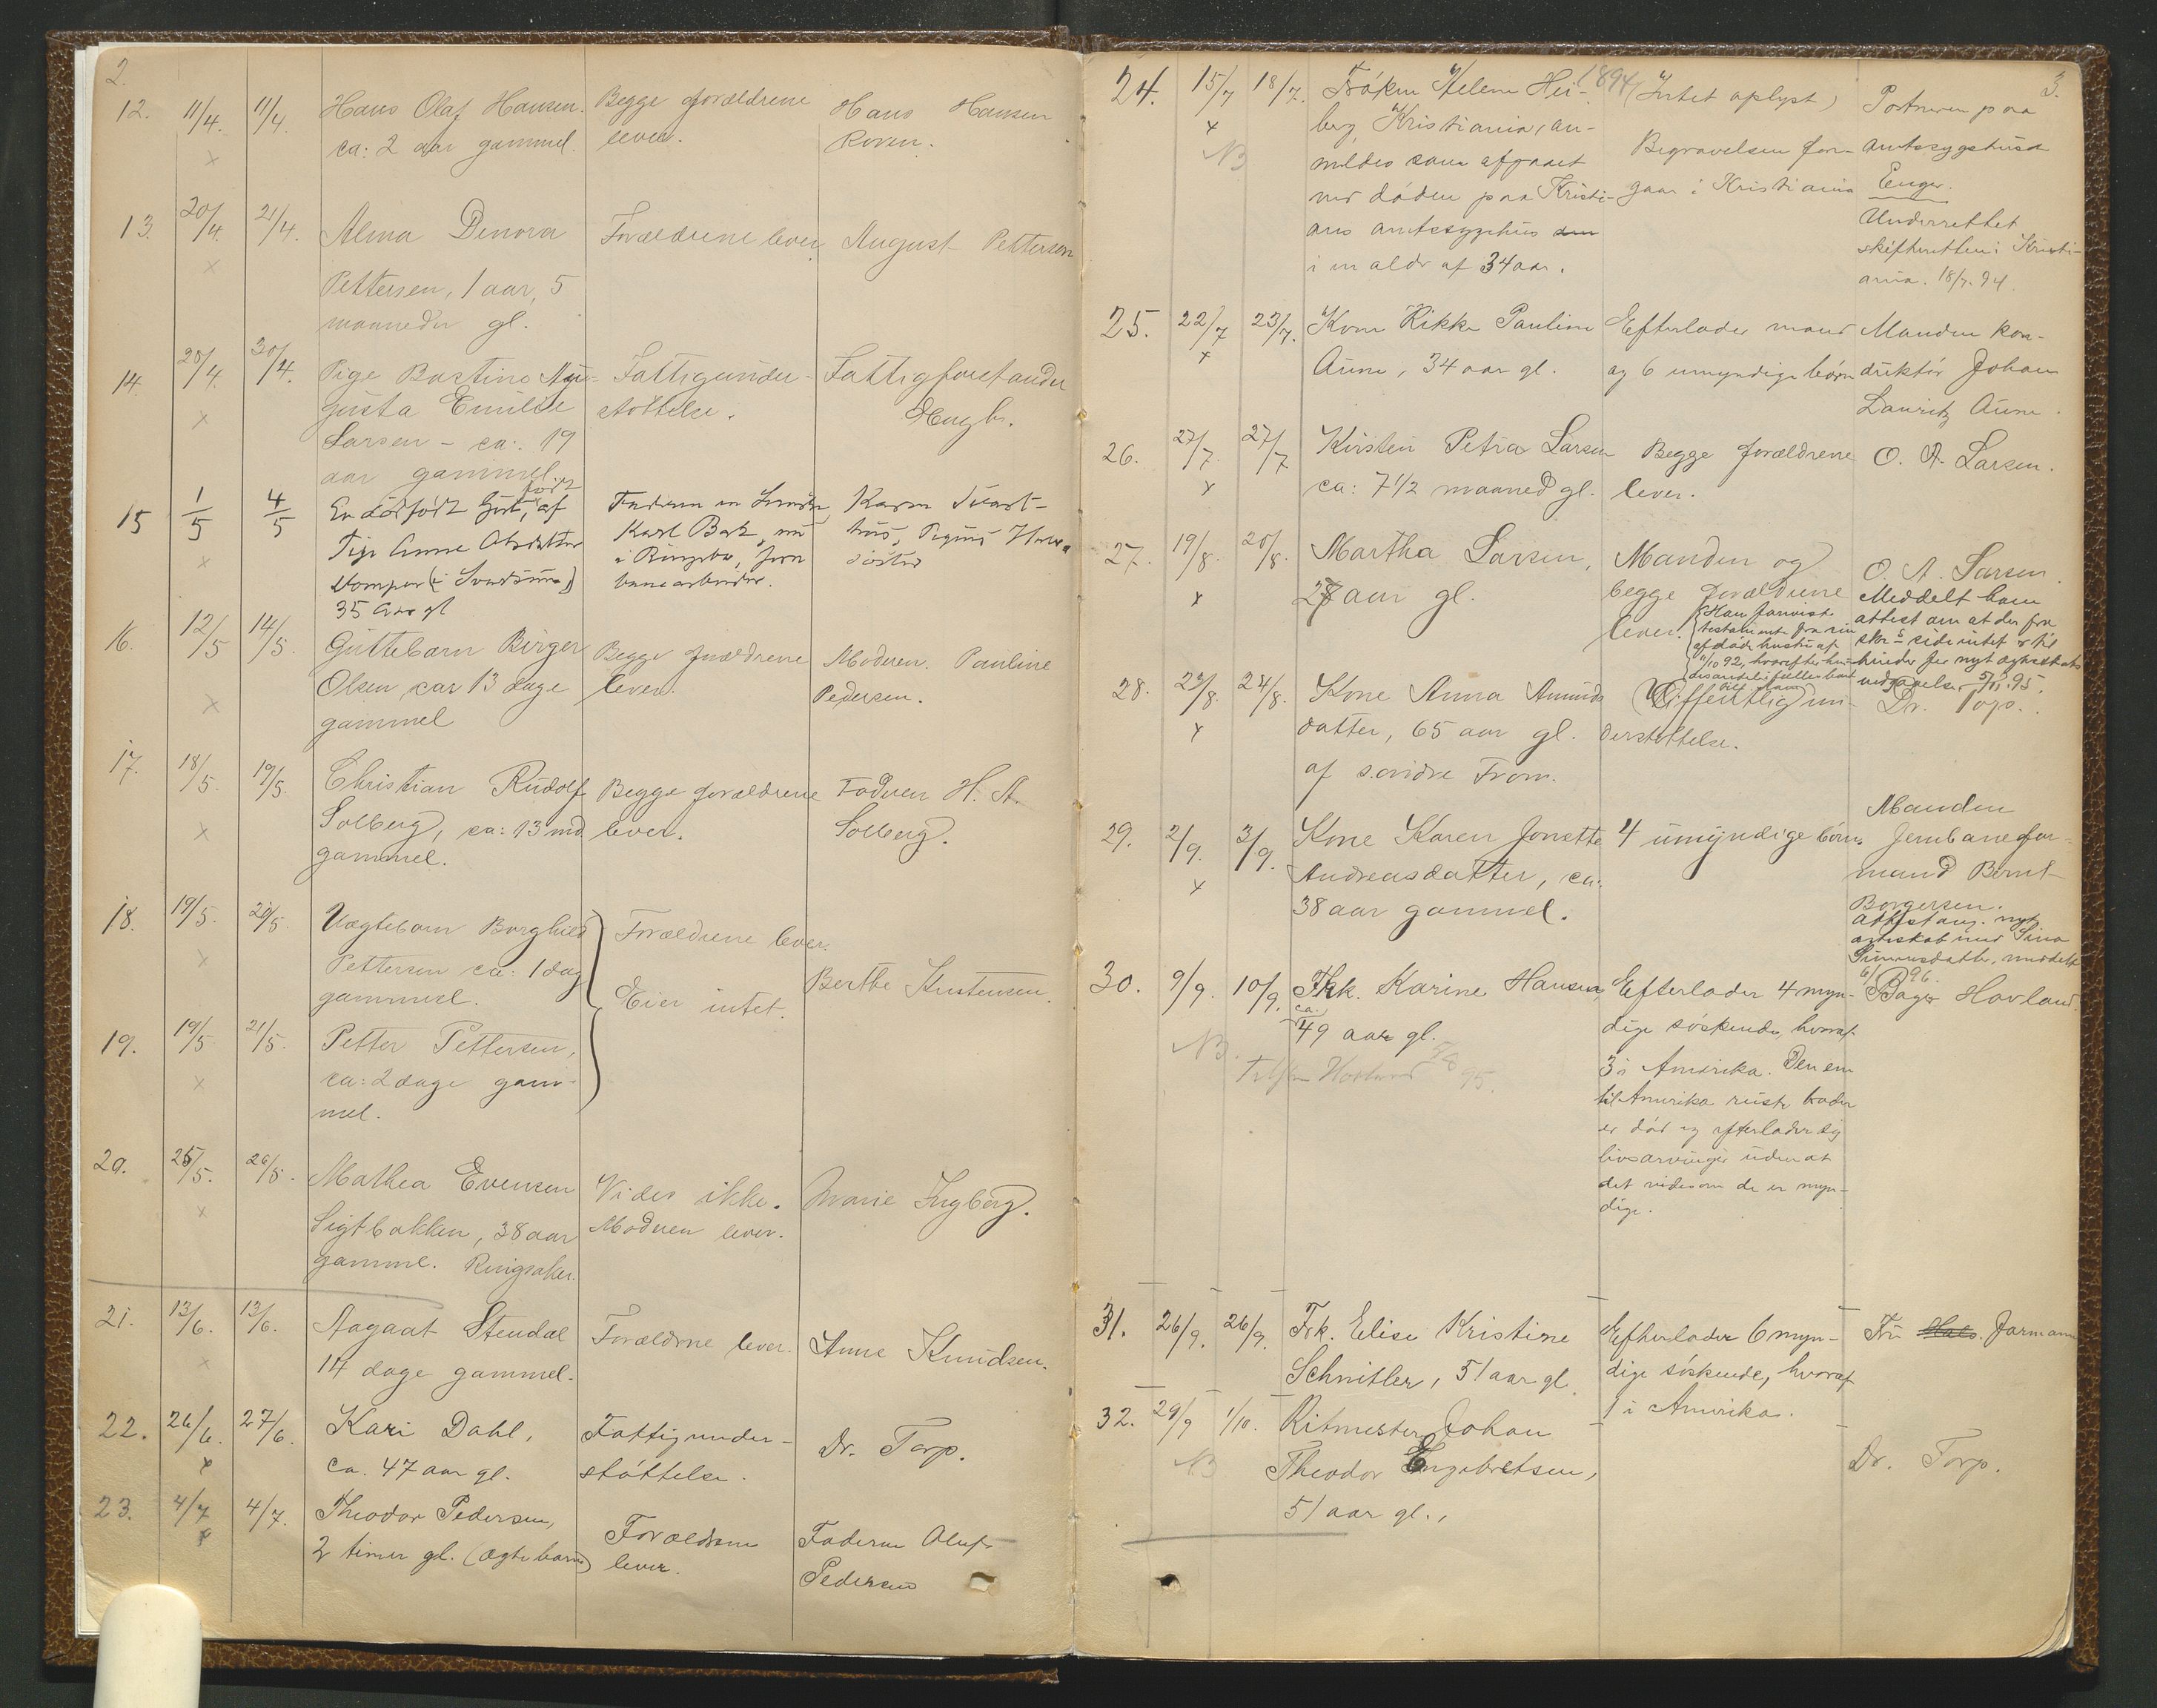 2.
12. 11/4. 11/4. Hans Olaf Hansen. Begge forældrene Hans Hansen
x ca: 2 aar gammel. lever. Roven.
13. 20/4. 21/4. Alma Denora Forældrene lever, August Petterson
x Pettersen, 1 aar, 5
maaneder gl.
14. 28/4. 30/4. Pige Bastine Au- Fattigunder- Fattigforstander
x gusta Emilie støttelse.
Larsen - ca: 19
aar gammel.
15 1/5 4/5 En dødfødt Gut, født af Faderen er Karen Svart-
x Pige Anne Karl Bak, nu hus,
i Ringebu, jern søster
35 Aar gl banearbeider.
16. 12/5 14/5. Guttebarn Birger Begge forældrene Moderen. Pauline
x Olsen, ca 13 dage lever. Pedersen.
gammel
17. 18/5. 19/5. Christian Rudolf Begge forældrene Faderen H. A.
x Solberg, ca: 13 md lever. Solberg.
gammel.
18. 19/5. 20/5. Uægtebarn Borghild Forældrene lever.
x Pettersen ca: 1 dag Berthe Kristensen.
gammel. Eier intet.
19. 19/5 21/5. Petter Pettersen,
x ca: 2 dage gam-
mel.
20. 25/5. 26/5. Mathea Evensen Vides ikke. Marie Ingberg.
x Sigtbakken, 38 aar Moderen lever.
gamml. Ringsaker.
21. 13/6. 13/6. Aagaat Stendal Forældrne lever. Anne Knudsen.
x 14 dage gammel.
22. 26/6. 27/6. Kari Dahl, Fattigunder- Dr. Torp.
x ca. 47 aar gl. støttelse.
23. 4/7 4/7. Theodor Pedersen, Forældrene Faderen Oluf
x 2 timer gl. (ægtebarn) lever. Pedersen
1894 3.
24. 15/7 18/7. Frøken Helene Hei- (Intet oplyst) Portneren paa
x berg, Kristiania, an- Begravelsen for- amtssygehuset
NB meldes som afgaaet gaar i Kristiania Enger.
ved døden paa Kristi- Underrettet
ans amtssygehus skifteretten i Kristi-
i en alder af 34 aar. ania. 18/7. 94.
25. 22/7 23/7. Kone Rikke Pauline Efterlader mand Manden kon-
x Aune, 34 aar gl. og 6 umyndige børn duktør Johan
Lauritz Aune.
26. 27/7. 27/7 Kirsten Petra Larsen Begge forældrene O. A. Larsen.
x ca: 7 1/2 maaned gl. lever.
27. 19/8. 20/8. Martha Larsen, Manden og O. A. Larsen.
x 28 aar gl. begge forældrene Meddelt ham
lever. Han foreviste attest om at der fra
testamente fra sin skr's side intet er til
afdøde hustru af hinder for nyt ægteskabs
11/10 92, hvorefter hen- indgaaelse 5/11. 95.
des andel i fælles boet
tilf. ham
28. 23/8. 24/8. Kone Anna Amunds Offentlig un- Dr. Torp.
x datter, 65 aar gl. derstøttelse.
af søndre Fron.
29. 2/9. 3/9. Kone Karen Jonette 4 umyndige børn. Manden
x Andreasdatter, ca: Jernbanefor-
38 aar gammel. mand Bernt
Borgersen.
Attest ang. nyt
ægteskab med Sina
Simensdatter, meddelt
96.
30. 9/9. 10/9. Frk. Karine Hansen Efterlader 4 myn- Bager Hovland.
ca. 49 aar gl. dige søskende, hvoraf
NB. 3 i Amerika. Den ene
til Amerika reiste broder
er død og efterlader sig
livsarvinger uden at
det vides om de er myn-
dige.
31. 26/9. 26/9. Frk. Elise Kristine Efterlader 6 myn- Fru Jarmann
Schnitler, 51 aar gl. dige søskende, hvoraf
1 i Amerika.
32. 29/9 1/10. Ritmester Johan Dr. Torp.
NB Theodor Engebretsen,
51 aar gl.,